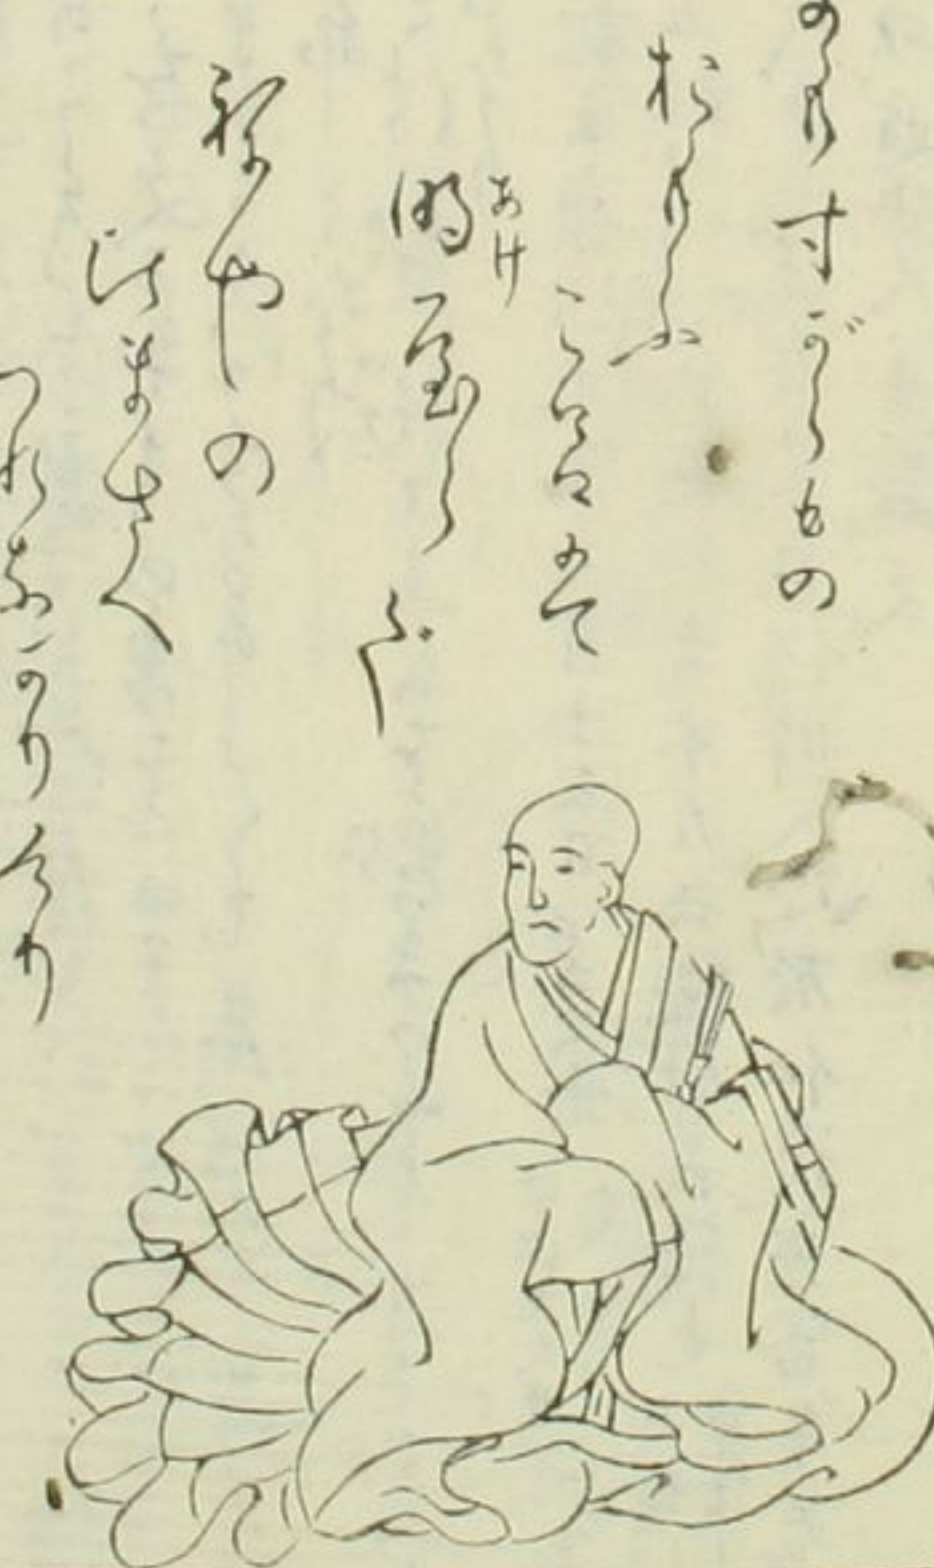 もすがらもの
おもふ
ころは
明やらで
あけ
ねやの
ひまさへ
つれなかりけり